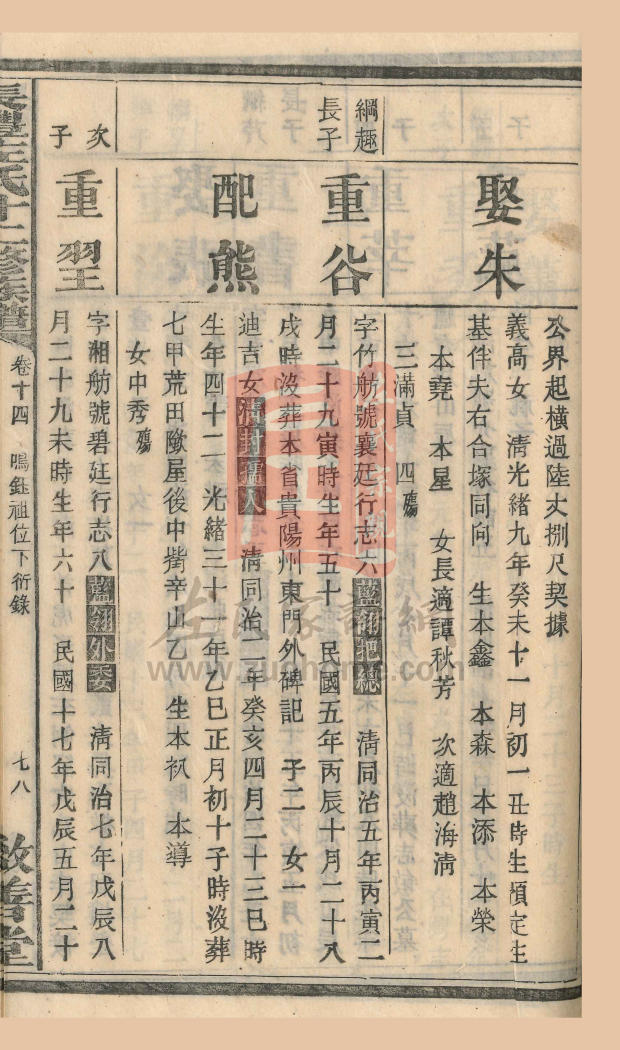 娶朱
公界起橫過陸丈捌尺契據
義高女 清光緒九年癸未十一月初一丑時生預定生
基伴夫右合塚同向 生本鑫 本森 本添 本榮
本堯 本星 女長適譚秋芳 次適趙海清
三滿貞 四殤
綱趣
長子
重谷
字竹舫號襄廷行志六藍翎把總 清同治五年丙寅二
月二十九寅時生年五十 民國五年丙辰十月二十八
戌時歿葬本省貴陽州東門外碑記 子二 女一
配熊
迪吉女清封孺人 清同治二年癸亥四月二十三巳時
生年四十二 光緒三十一年乙巳正月初十子時歿葬
七甲荒田墩屋後中嶺辛山乙 生本 本導
女中秀殤
次
子
重望
字湘舫號碧廷行志八藍翎外委 清同治七年戊辰八
月二十九未時生年六十 民國十七年戊辰五月二十
氏十二修族譜
卷十四 鳴鈺祖位下衍錄
七八
敦善堂
www.zuohome.com